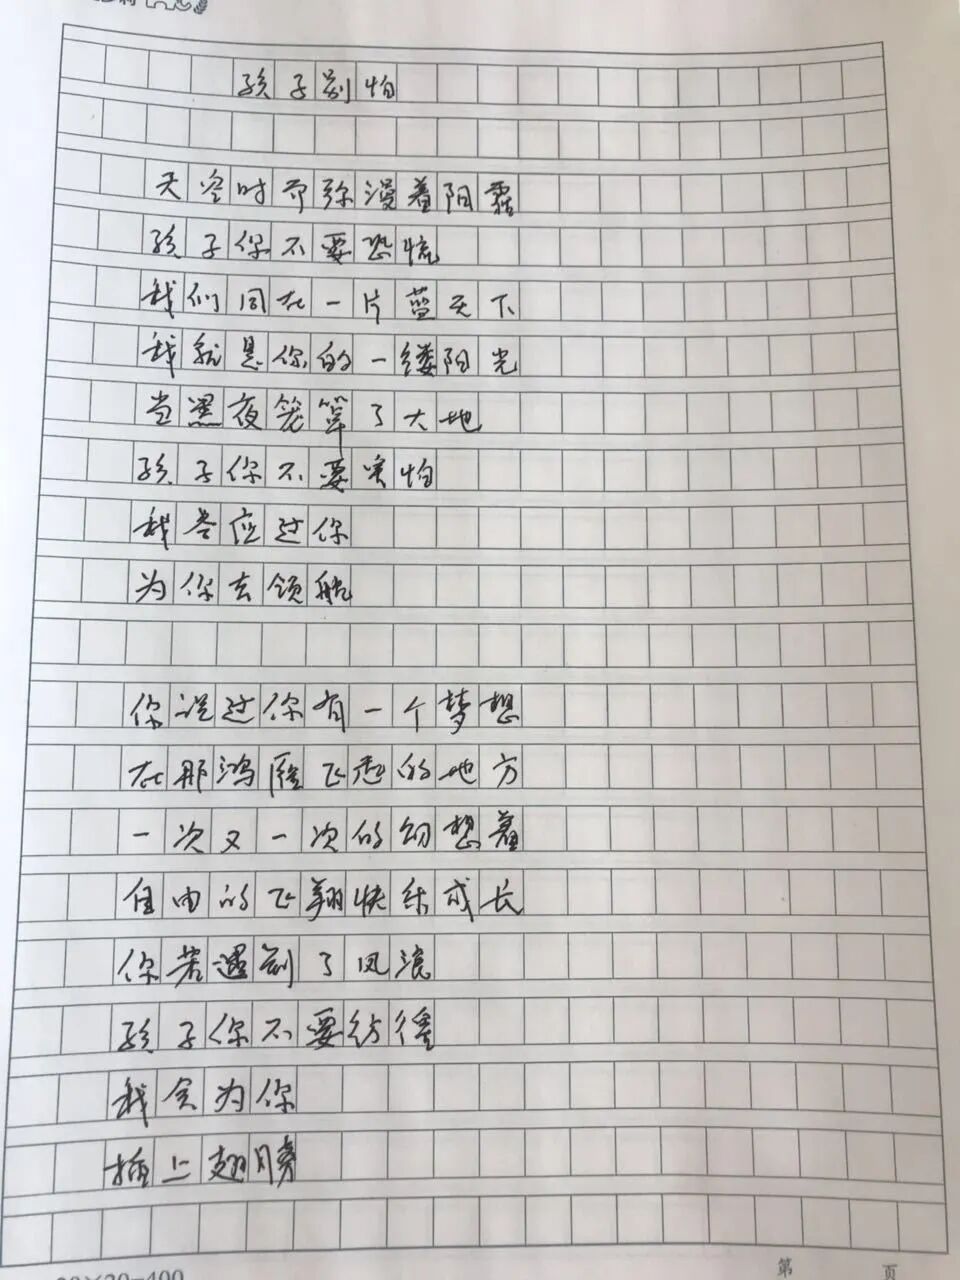 孩子别怕
天空时而弥漫着阴霾
孩子你不要恐慌
我们同在一片蓝天下
我就是你的一缕阳光
当黑夜笼罩了大地
孩子你不要害怕
我答应过你
为你去领航
你说过你有一个梦想
在那鸿雁飞过的地方
一次又一次的幻想着
自由的飞翔快乐成长
你若遇到了风浪
孩子你不要彷徨
我会为你
插上翅膀
20×20=400
第 页